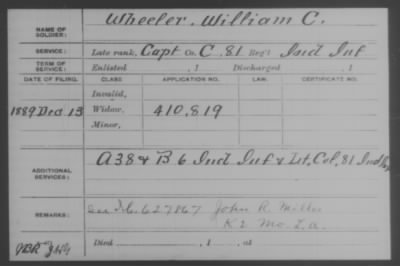 NAME OF SOLDIER: Wheeler, William C.
SERVICE: Late rank, Capt Co. C, 81 Reg't Ind Inf
TERM OF SERVICE: Enlisted , 1 Discharged , 1
DATE OF FILING. CLASS. APPLICATION NO. LAW. CERTIFICATE NO.
Invalid,
1889 Dec 13 Widow, 410,819
Minor,
ADDITIONAL SERVICES: A 38 & B 6 Ind Inf & Lt. Col. 81 Ind
REMARKS: See 627867 John R. Miller
K 2 Mo. L.a.
Died , 1 , at